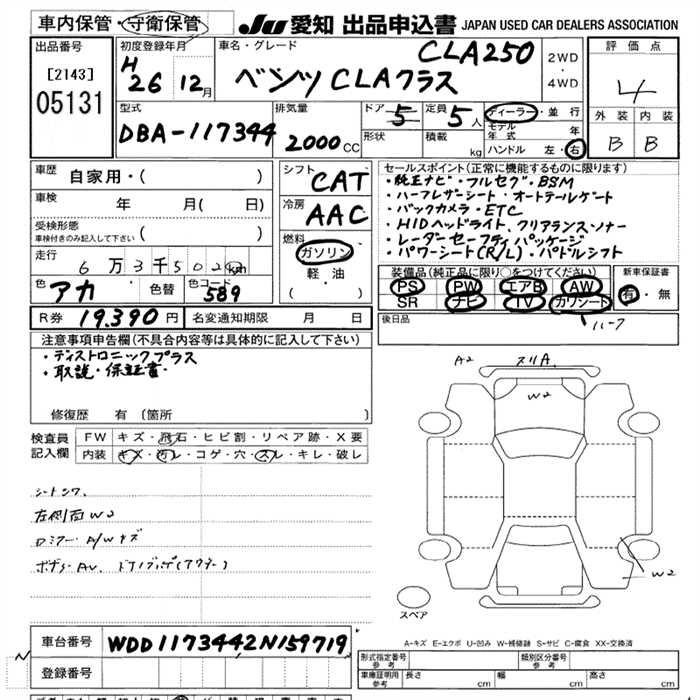 車内保管・守衛保管
JU 愛知 出品申込書 JAPAN USED CAR DEALERS ASSOCIATION
出品番号
[2143]
05131
初度登録年月
H
26 12月
車名・グレード
CLA250
ベンツ CLAクラス
2WD
・
4WD
評価点
4
外装 内装
B B
型式
DBA-117344
排気量
2000CC
ドア 5
形状
定員 5人
積載 kg
ディーラー・並行
モデル年式 年
ハンドル 左・右
車歴
自家用・( )
車検
年 月( 日)
受検形態
車検付きのみ記入して下さい ( )
走行
6万3千502 km
色
アカ
色替
色コード
589
シフト
CAT
冷房
AAC
燃料
ガソリン
軽・油
( )
R券 19,390円 名変通知期限 月 日
セールスポイント(正常に機能するものに限ります)
・純正ナビ・フルセグ・BSM
・ハーフレザーシート・オートテールゲート
・バックカメラ・ETC
・HIDヘッドライト、クリアランスソナー
・レーダーセーフティパッケージ
・パワーシート(R/L)・パドルシフト
装備品(純正品に限り○をつけてください)
PS PW エアB AW
SR ナビ TV カワシート
新車保証書
有・無
後日品
ハーフ
注意事項申告欄(不具合内容等は具体的に記入して下さい)
・ディストロニックプラス
・取説・保証書・
修復歴 有(箇所
検査員記入欄
FW キズ・飛石・ヒビ割・リペア跡・X要
内装 キズ・汚レ・コゲ・穴・スレ・キレ・破レ
左側面W2
A2 スリA
W2
W2
スペア
A-キズ E-エクボ U-凹み W-補修跡 S-サビ C-腐食 XX-交換済
車台番号 WDD1173442N159719
登録番号
形式指定番号
参考
類別区分番号
参考
車庫証明用
参考
長さ cm 幅 cm 高さ cm